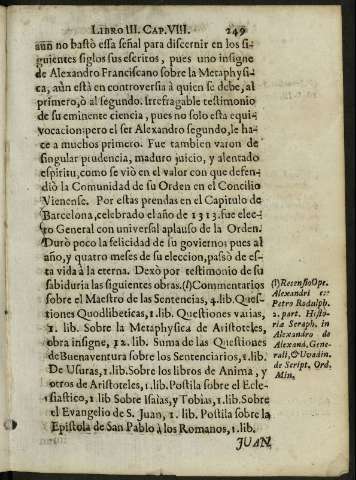 LIBRO III. CAP. VIII. 249
aun no bastò essa señal para discernir en los si-
guientes siglos sus escritos, pues uno insigne
de Alexandro Franciscano sobre la Metaphysi-
ca, aún està en controversia à quien se debe, al
primero, ò al segundo. Irrefragable testimonio
de su eminente ciencia, pues no solo esta equi-
vocacion: pero el ser Alexandro segundo, le ha-
ce a muchos primero. Fue tambien varon de
singular prudencia, maduro juicio, y alentado
espiritu, como se viò en el valor con que defen-
diò la Comunidad de su Orden en el Concilio
Vienense. Por estas prendas en el Capitulo de
Barcelona, celebrado el año de 1313. fue elec-
to General con universal aplauso de la Orden.
Durò poco la felicidad de su govierno; pues al
año, y quatro meses de su eleccion, passò de es-
ta vida à la eterna. Dexò por testimonio de su
sabiduria las siguientes obras. (l) Commentarios
sobre el Maestro de las Sentencias, 4. lib. Ques-
tiones Quodlibeticas, 1. lib. Questiones varias,
1. lib. Sobre la Metaphysica de Aristoteles,
obra insigne, 12. lib. Suma de las Questiones
de Buenaventura sobre los Sentenciarios, 1. lib.
De Usuras, 1. lib. Sobre los libros de Anima, y
otros de Aristoteles, 1. lib. Postila sobre el Ecle-
siastico, 1. lib Sobre Isaias, y Tobias, 1. lib. Sobre
el Evangelio de S. Juan, 1. lib. Postila sobre la
Epistola de San Pablo à los Romanos, 1. lib.
JUAN
(l) Recensio Ope.
Alexandri ex
Petro Rodulph.
2. part. Histo-
ria Seraph. in
Alexandro de
Alexand. Gene-
rali, & Uvadin.
de Script. Ord.
Min.